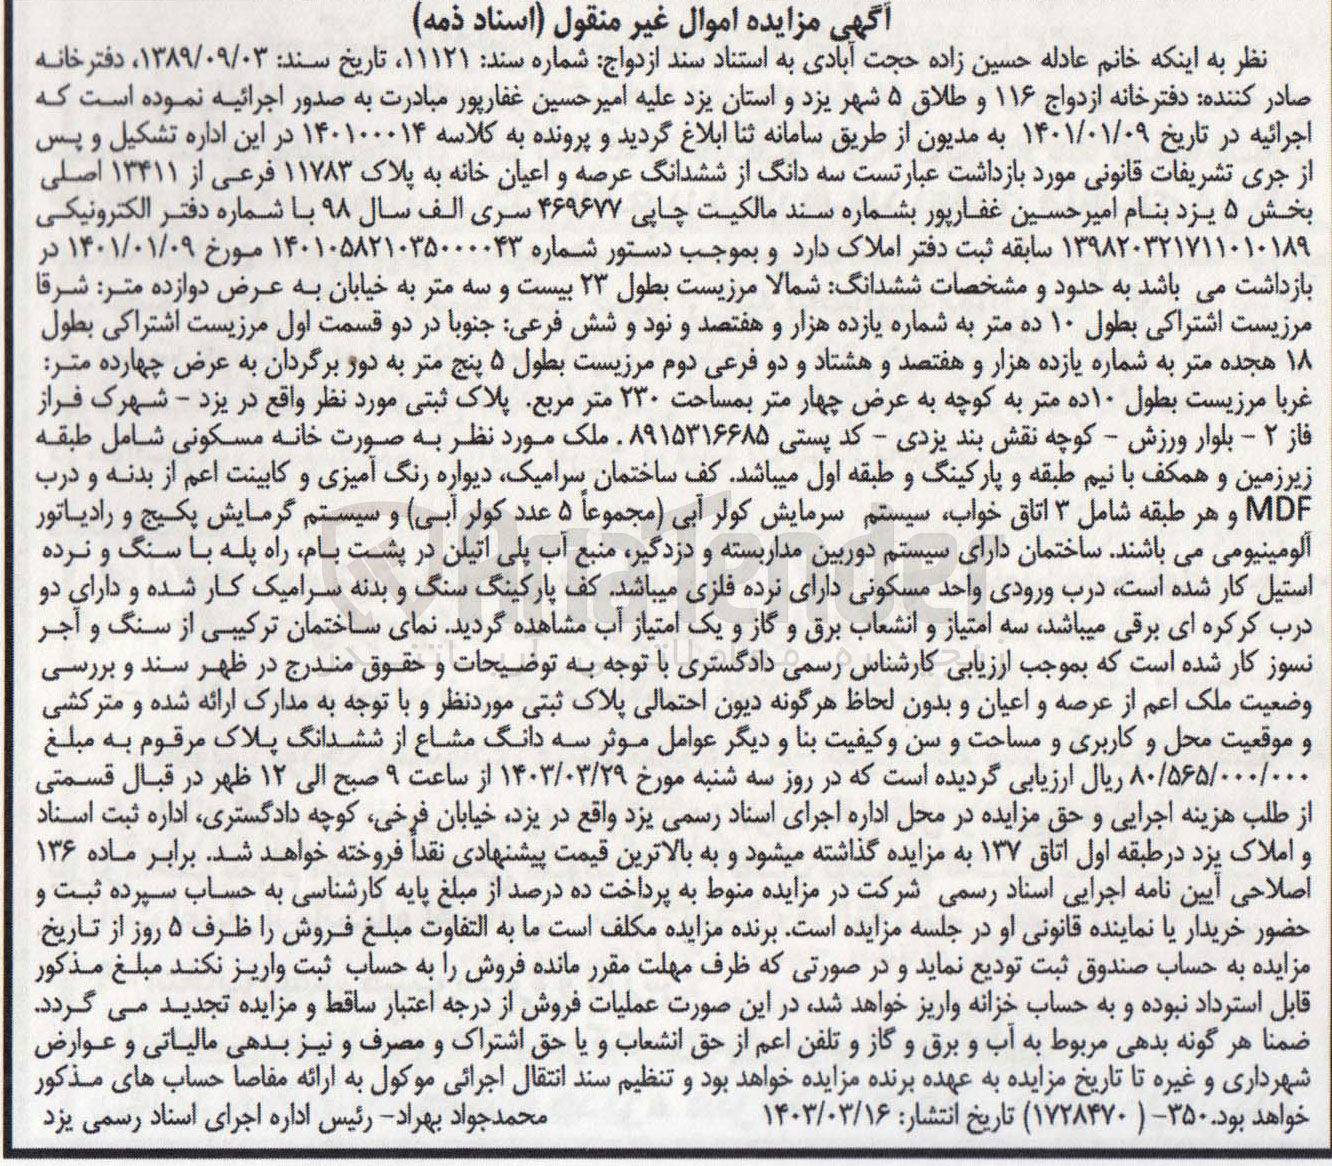 آگهی مزایده اموال غیر منقول (اسناد ذمه)
نظر به اینکه خانم عادله حسین زاده حجت آبادی به استناد سند ازدواج: شماره سند: ۱۱۱۲۱، تاریخ سند: ۱۳۸۹/۰۹/۰۳، دفترخانه
صادر کننده: دفترخانه ازدواج ۱۱۶ و طلاق ۵ شهر یزد و استان یزد علیه امیرحسین غفارپور مبادرت به صدور اجرائیه نموده است که
اجرائیه در تاریخ ۱۴۰۱/۰۱/۰۹ به مدیون از طریق سامانه ثنا ابلاغ گردید و پرونده به کلاسه ۱۴۰۱۰۰۰۱۴ در این اداره تشکیل و پس
از جری تشریفات قانونی مورد بازداشت عبارتست سه دانگ از ششدانگ عرصه و اعیان خانه به پلاک ۱۱۷۸۳ فرعی از ۱۳۴۱۱ اصلی
بخش ۵ یزد بنام امیرحسین غفارپور بشماره سند مالکیت چاپی ۴۶۹۶۷۷ سری الف سال ۹۸ با شماره دفتر الکترونیکی
۱۳۹۸۲۰۳۲۱۷۱۱۰۱۰۱۸۹ سابقه ثبت دفتر املاک دارد و بموجب دستور شماره ۱۴۰۱۰۵۸۲۱۰۳۵۰۰۰۰۴۳ مورخ ۱۴۰۱/۰۱/۰۹ در
بازداشت می باشد به حدود و مشخصات ششدانگ: شمالا مرزیست بطول ۲۳ بیست و سه متر به خیابان به عرض دوازده متر: شرقا
مرزیست اشتراکی بطول ۱۰ ده متر به شماره یازده هزار و هفتصد و نود و شش فرعی: جنوبا در دو قسمت اول مرزیست اشتراکی بطول
۱۸ هجده متر به شماره یازده هزار و هفتصد و هشتاد و دو فرعی دوم مرزیست بطول ۵ پنج متر به دور برگردان به عرض چهارده متر:
غربا مرزیست بطول ۱۰ده متر به کوچه به عرض چهار متر بمساحت ۲۳۰ متر مربع. پلاک ثبتی مورد نظر واقع در یزد - شهرک فراز
فاز ۲ - بلوار ورزش - کوچه نقش بند یزدی - کد پستی ۸۹۱۵۳۱۶۶۸۵ . ملک مورد نظر به صورت خانه مسکونی شامل طبقه
زیرزمین و همکف با نیم طبقه و پارکینگ و طبقه اول میباشد. کف ساختمان سرامیک، دیواره رنگ آمیزی و کابینت اعم از بدنه و درب
MDF و هر طبقه شامل ۳ اتاق خواب، سیستم سرمایش کولر آبی (مجموعاً ۵ عدد کولر آبی) و سیستم گرمایش پکیج و رادیاتور
آلومینیومی می باشند. ساختمان دارای سیستم دوربین مداربسته و دزدگیر، منبع آب پلی اتیلن در پشت بام، راه پله با سنگ و نرده
استیل کار شده است، درب ورودی واحد مسکونی دارای نرده فلزی میباشد. کف پارکینگ سنگ و بدنه سرامیک کار شده و دارای دو
درب کرکره ای برقی میباشد، سه امتیاز و انشعاب برق و گاز و یک امتیاز آب مشاهده گردید. نمای ساختمان ترکیبی از سنگ و آجر
نسوز کار شده است که بموجب ارزیابی کارشناس رسمی دادگستری با توجه به توضیحات و حقوق مندرج در ظهر سند و بررسی
وضعیت ملک اعم از عرصه و اعیان و بدون لحاظ هرگونه دیون احتمالی پلاک ثبتی موردنظر و با توجه به مدارک ارائه شده و مترکشی
و موقعیت محل و کاربری و مساحت و سن وکیفیت بنا و دیگر عوامل موثر سه دانگ مشاع از ششدانگ پلاک مرقوم به مبلغ
۸۰/۵۶۵/۰۰۰/۰۰۰ ریال ارزیابی گردیده است که در روز سه شنبه مورخ ۱۴۰۳/۰۳/۲۹ از ساعت ۹ صبح الی ۱۲ ظهر در قبال قسمتی
از طلب هزینه اجرایی و حق مزایده در محل اداره اجرای اسناد رسمی یزد واقع در یزد، خیابان فرخی، کوچه دادگستری، اداره ثبت اسناد
و املاک یزد درطبقه اول اتاق ۱۳۷ به مزایده گذاشته میشود و به بالاترین قیمت پیشنهادی نقداً فروخته خواهد شد. برابر ماده ۱۳۶
اصلاحی آیین نامه اجرایی اسناد رسمی شرکت در مزایده منوط به پرداخت ده درصد از مبلغ پایه کارشناسی به حساب سپرده ثبت و
حضور خریدار یا نماینده قانونی او در جلسه مزایده است. برنده مزایده مکلف است ما به التفاوت مبلغ فروش را ظرف ۵ روز از تاریخ
مزایده به حساب صندوق ثبت تودیع نماید و در صورتی که ظرف مهلت مقرر مانده فروش را به حساب ثبت واریز نکند مبلغ مذکور
قابل استرداد نبوده و به حساب خزانه واریز خواهد شد، در این صورت عملیات فروش از درجه اعتبار ساقط و مزایده تجدید می گردد.
ضمنا هر گونه بدهی مربوط به آب و برق و گاز و تلفن اعم از حق انشعاب و یا حق اشتراک و مصرف و نیز بدهی مالیاتی و عوارض
شهرداری و غیره تا تاریخ مزایده به عهده برنده مزایده خواهد بود و تنظیم سند انتقال اجرائی موکول به ارائه مفاصا حساب های مذکور
خواهد بود.۳۵۰- ( ۱۷۲۸۴۷۰) تاریخ انتشار: ۱۴۰۳/۰۳/۱۶ محمدجواد بهراد- رئیس اداره اجرای اسناد رسمی یزد
AriaTender